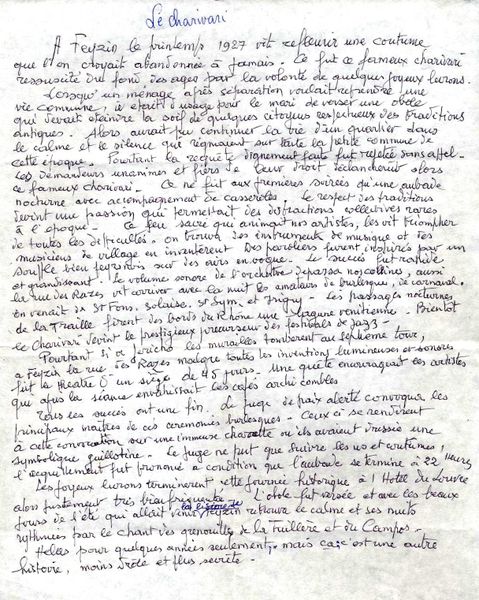 Le charivari
A Feyzin le printemps 1927 vit refleurir une coutume
que l'on croyait abandonnée à jamais. Ce fut ce fameux charivari
ressuscité du fond des ages par la volonté de quelques joyeux lurons.
Lorsqu'un ménage, après séparation voulait reprendre une
vie commune, il était d'usage pour le mari de verser une obole
qui devait éteindre la soif de quelques citoyens respectueux des traditions
antiques. Alors aurait pu continuer la vie d'un quartier dans
le calme et le silence qui régnaient sur toute la petite commune de
cette époque. Pourtant la requête dignement faite fut rejetée sans appel.
Les demandeurs unanimes et fiers de leur droit déclanchèrent alors
ce fameux charivari. Ce ne fut aux premières soirées qu'une aubade
nocturne avec accompagnement de casseroles. Le respect des traditions
devint une passion qui permettait des distractions collectives rares
à l'époque. Ce feu sacré qui animait nos artistes, les vit triompher
de toutes les difficultés. On trouva des instruments de musique et des
musiciens de village en inventèrent. Des paroliers furent inspirés par un
souffle bien feyzinois sur des airs en vogue. Le succès fut rapide
et grandissant. Le volume sonore de l'orchestre dépassa nos collines, aussi
la rue des Razes vit arriver avec la nuit les amateurs de burlesque, de carnaval.
en venait de St Fons, Solaise, St Sym, et Irigny. Les passages nocturnes
de la Traille firent des bords du Rhône une lagune vénitienne. Bientôt
le Charivari devint le prestigieux précurseur des festivals de Jazz.
Pourtant si à Jéricho les murailles tombèrent au septième tour,
à Feyzin la rue des Razes malgré toutes les inventions lumineuses et sonores
fut le théatre d'un siège de 45 jours. Une quête encourageait les artistes
qui après la séance envahissait les cafés archi combles
Tous ses succès ont une fin. Le juge de paix alerté convoqua les
principaux maîtres de ces cérémonies burlesques. Ceux ci se rendirent
à cette convocation sur une immense charrette où ils avaient dressé une
symbolique guillotine. Le juge ne put que suivre les us et coutumes,
l'acquittement fut prononcé à condition que l'aubade se termine à 22 Heures
Les joyeux lurons terminèrent cette journée historique à l'Hotel du Louvre
alors justement très bien fréquenté. L'obole fut versée et avec les beaux
jours de l'été qui allait venir Feyzin retrouva le calme et ses nuits
rythmées par le chant des grenouilles de la Tuillere et du Campos.
Hélas pour quelques années seulement, mais ça c'est une autre
histoire, moins drôle et plus secrète.